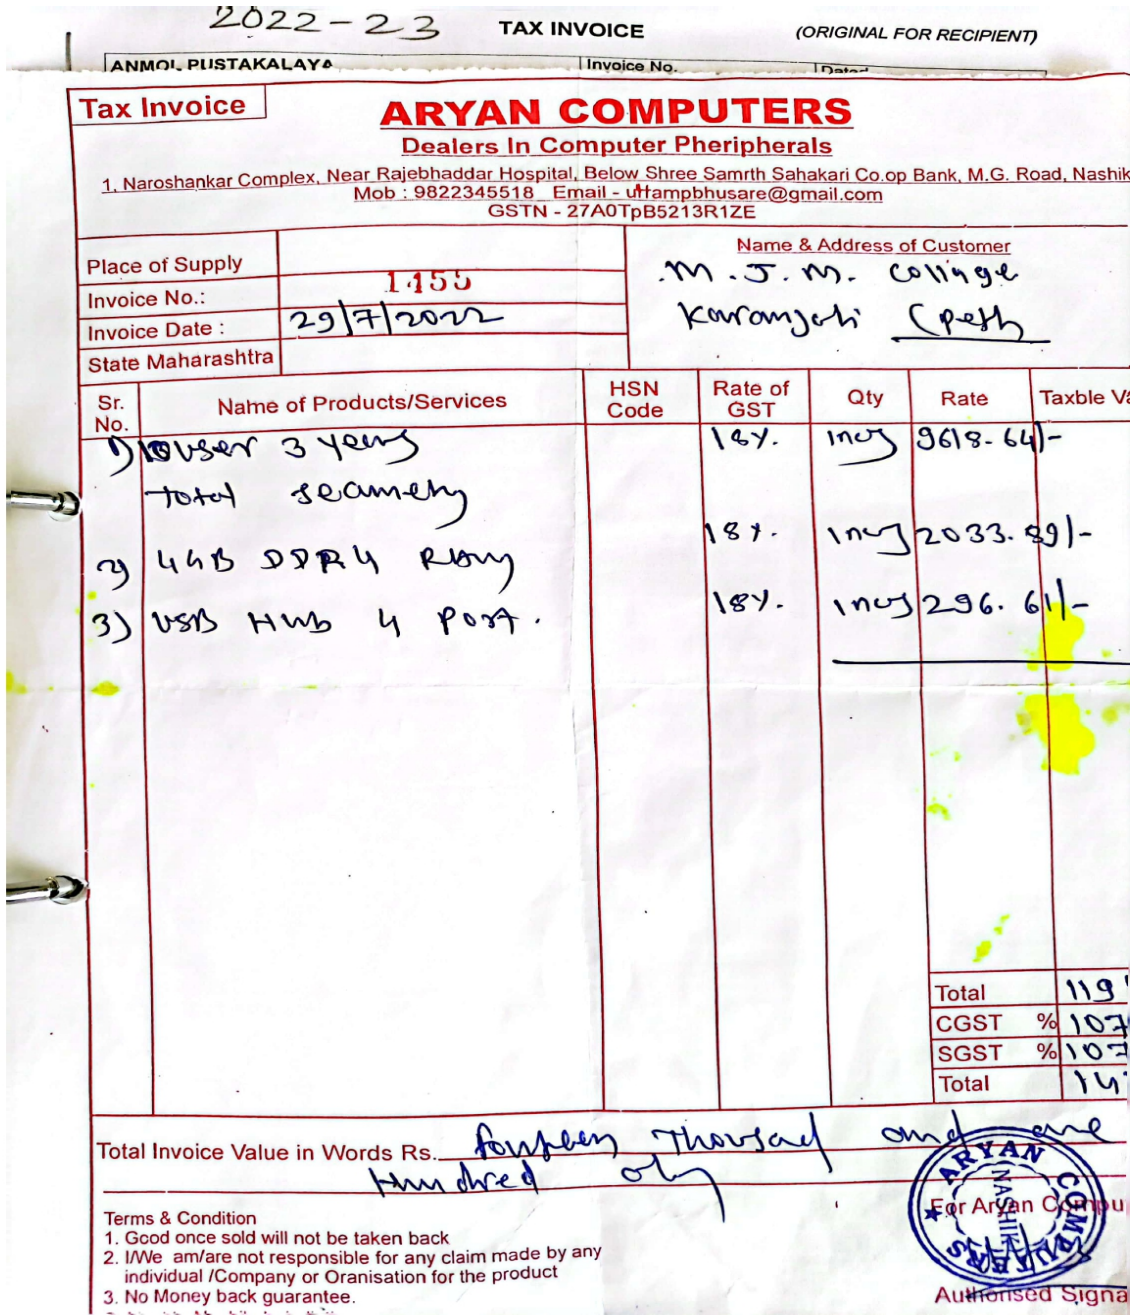 2022-23
TAX INVOICE (ORIGINAL FOR RECIPIENT)
ANMOL PUSTAKALAYA Invoice No. Dated
Tax Invoice
ARYAN COMPUTERS
Dealers In Computer Pheripherals
1, Naroshankar Complex, Near Rajebhaddar Hospital, Below Shree Samrth Sahakari Co.op Bank, M.G. Road, Nashik
Mob : 9822345518 Email - uttampbhusare@gmail.com
GSTN - 27A0TpB5213R1ZE
Name & Address of Customer
Place of Supply
M.J.M. Collage
Invoice No.: 1455
Karanjali (Peth
Invoice Date : 29/7/2022
State Maharashtra
Sr. No. Name of Products/Services HSN Code Rate of GST Qty Rate Taxble Va
1) 10user 3 years 18%. 1nos 9618.64/-
Total
2) 4GB DDR4 RAM 18%. 1nos 2033.89/-
3) USB HUB 4 Port. 18%. 1nos 296.61/-
Total 119
CGST % 107
SGST % 107
Total 14
Total Invoice Value in Words Rs. fourteen Thousad and one
Hundred only
ARYAN COMPUTERS
NASHIK
For Aryan Compu
Terms & Condition
1. Good once sold will not be taken back
2. I/We am/are not responsible for any claim made by any
individual /Company or Oranisation for the product
3. No Money back guarantee.
Authorised Signa